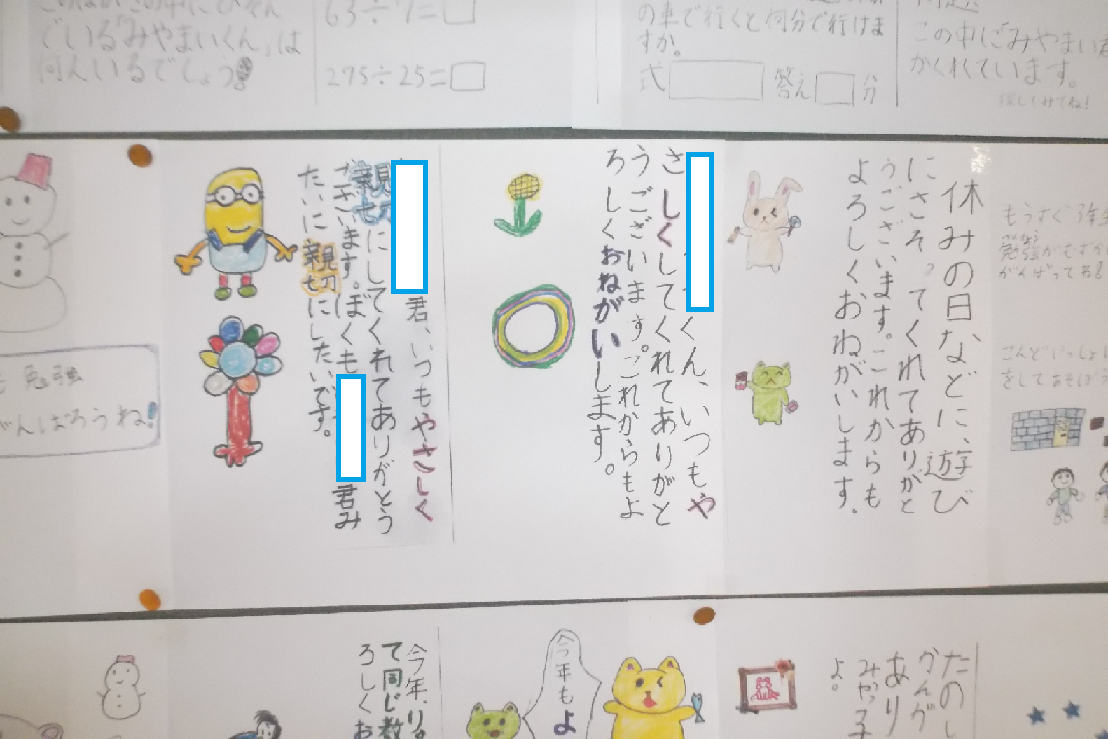 でいる「みやまいくん」は
何人いるでしょう
63÷7=
275÷25=
の車で行くと何分で行けま
すか。
式
答え
分
この中にみやまい君
かくれています。
探してみてね!
勉強
がんばろうね!
君、いつもやさしく
親切にしてくれてありがとう
ございます。ぼくも
君み
たいに親切にしたいです。
くん、いつもや
さしくしてくれてありがと
うございます。これからもよ
ろしくおねがいします。
休みの日などに、遊び
にさそってくれてありがと
うございます。これからも
よろしくおねがいします。
もうすぐ
勉強がむずか
がんばってね
こんどいっしょに
をしてあそぼう
今年、り。
て同じ教
ろしくお
今年もよ
たのし
かんが
あり
みやっ子
よ。